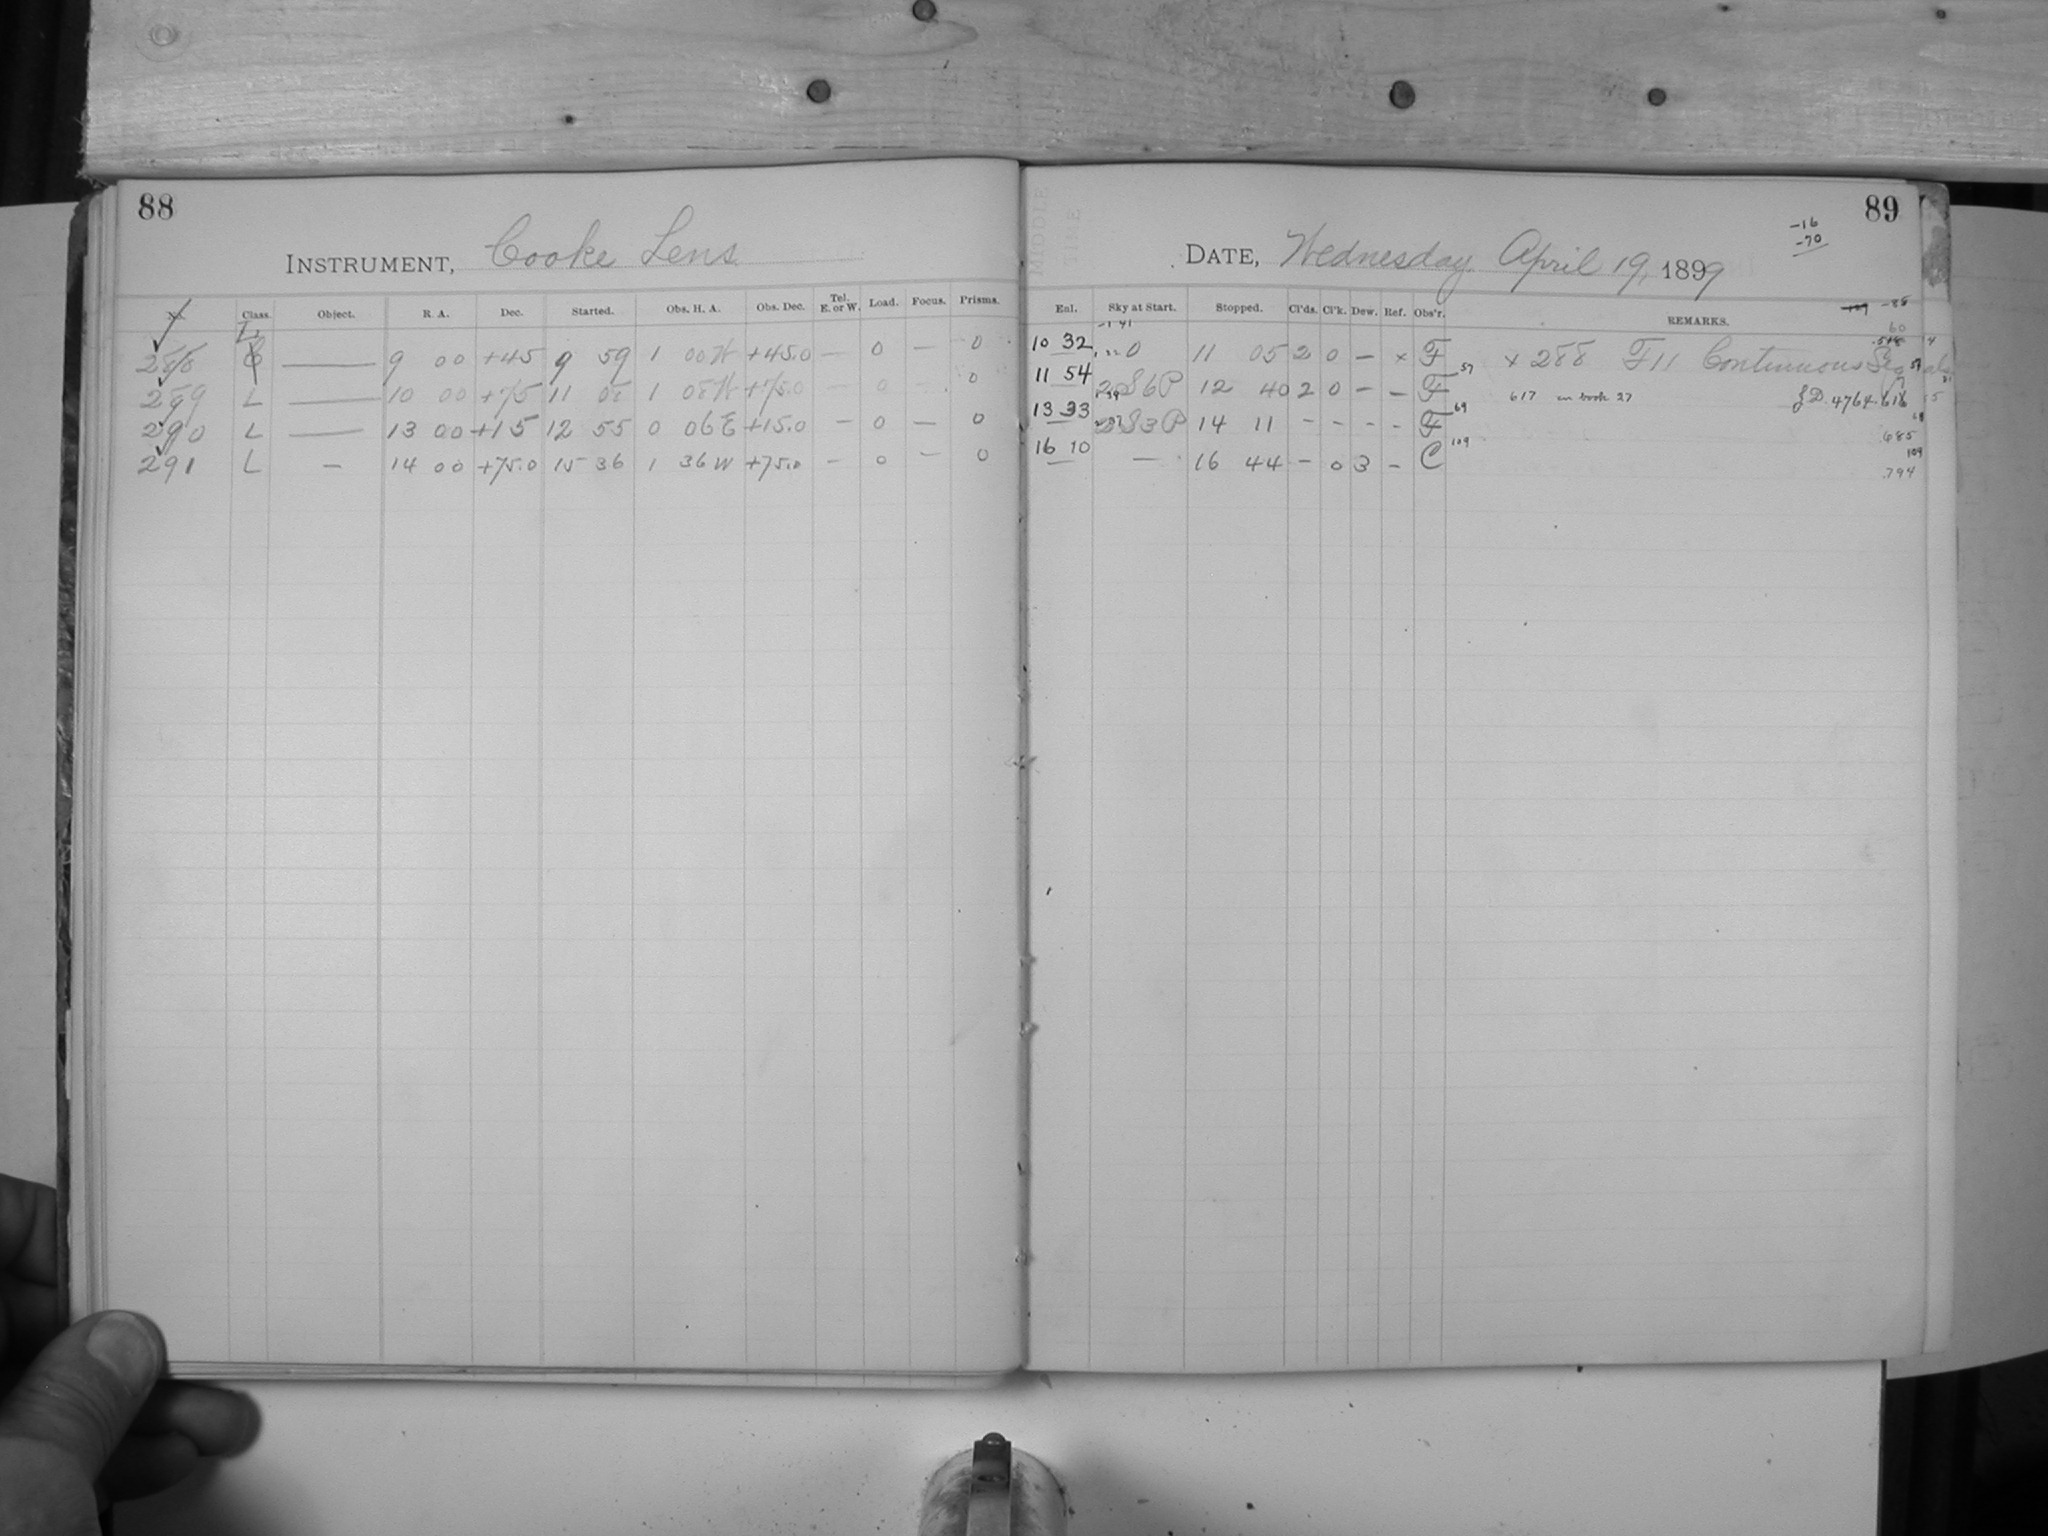 88
INSTRUMENT, Cooke Lens
No. Class. Object. R. A. Dec. Started. Obs. H. A. Obs. Dec. Tel. E. or W. Load. Focus. Prisms.
288 L — 9 00 +45 9 59 1 00 W +45.0 — 0 — 0
289 L — 10 00 +75 11 08 1 08 W +75.0 — 0 — 0
290 L — 13 00 +15 12 55 0 06 E +15.0 — 0 — 0
291 L — 14 00 +75.0 15 36 1 36 W +75.0 — 0 — 0
89
-16
-70
DATE, Wednesday April 19, 1899
Enl. Sky at Start. Stopped. Cl'ds. Cl'k. Dew. Ref. Obs'r. REMARKS.
10 32 0 11 05 2 0 — × F × 288 F11 Continuous
11 54 2 S 6 P 12 40 2 0 — — F 57 617 in book 27 JD. 4764.616
13 33 2 S 3 P 14 11 - - - - F 69 .685
16 10 — 16 44 — 0 3 — C 109 .794